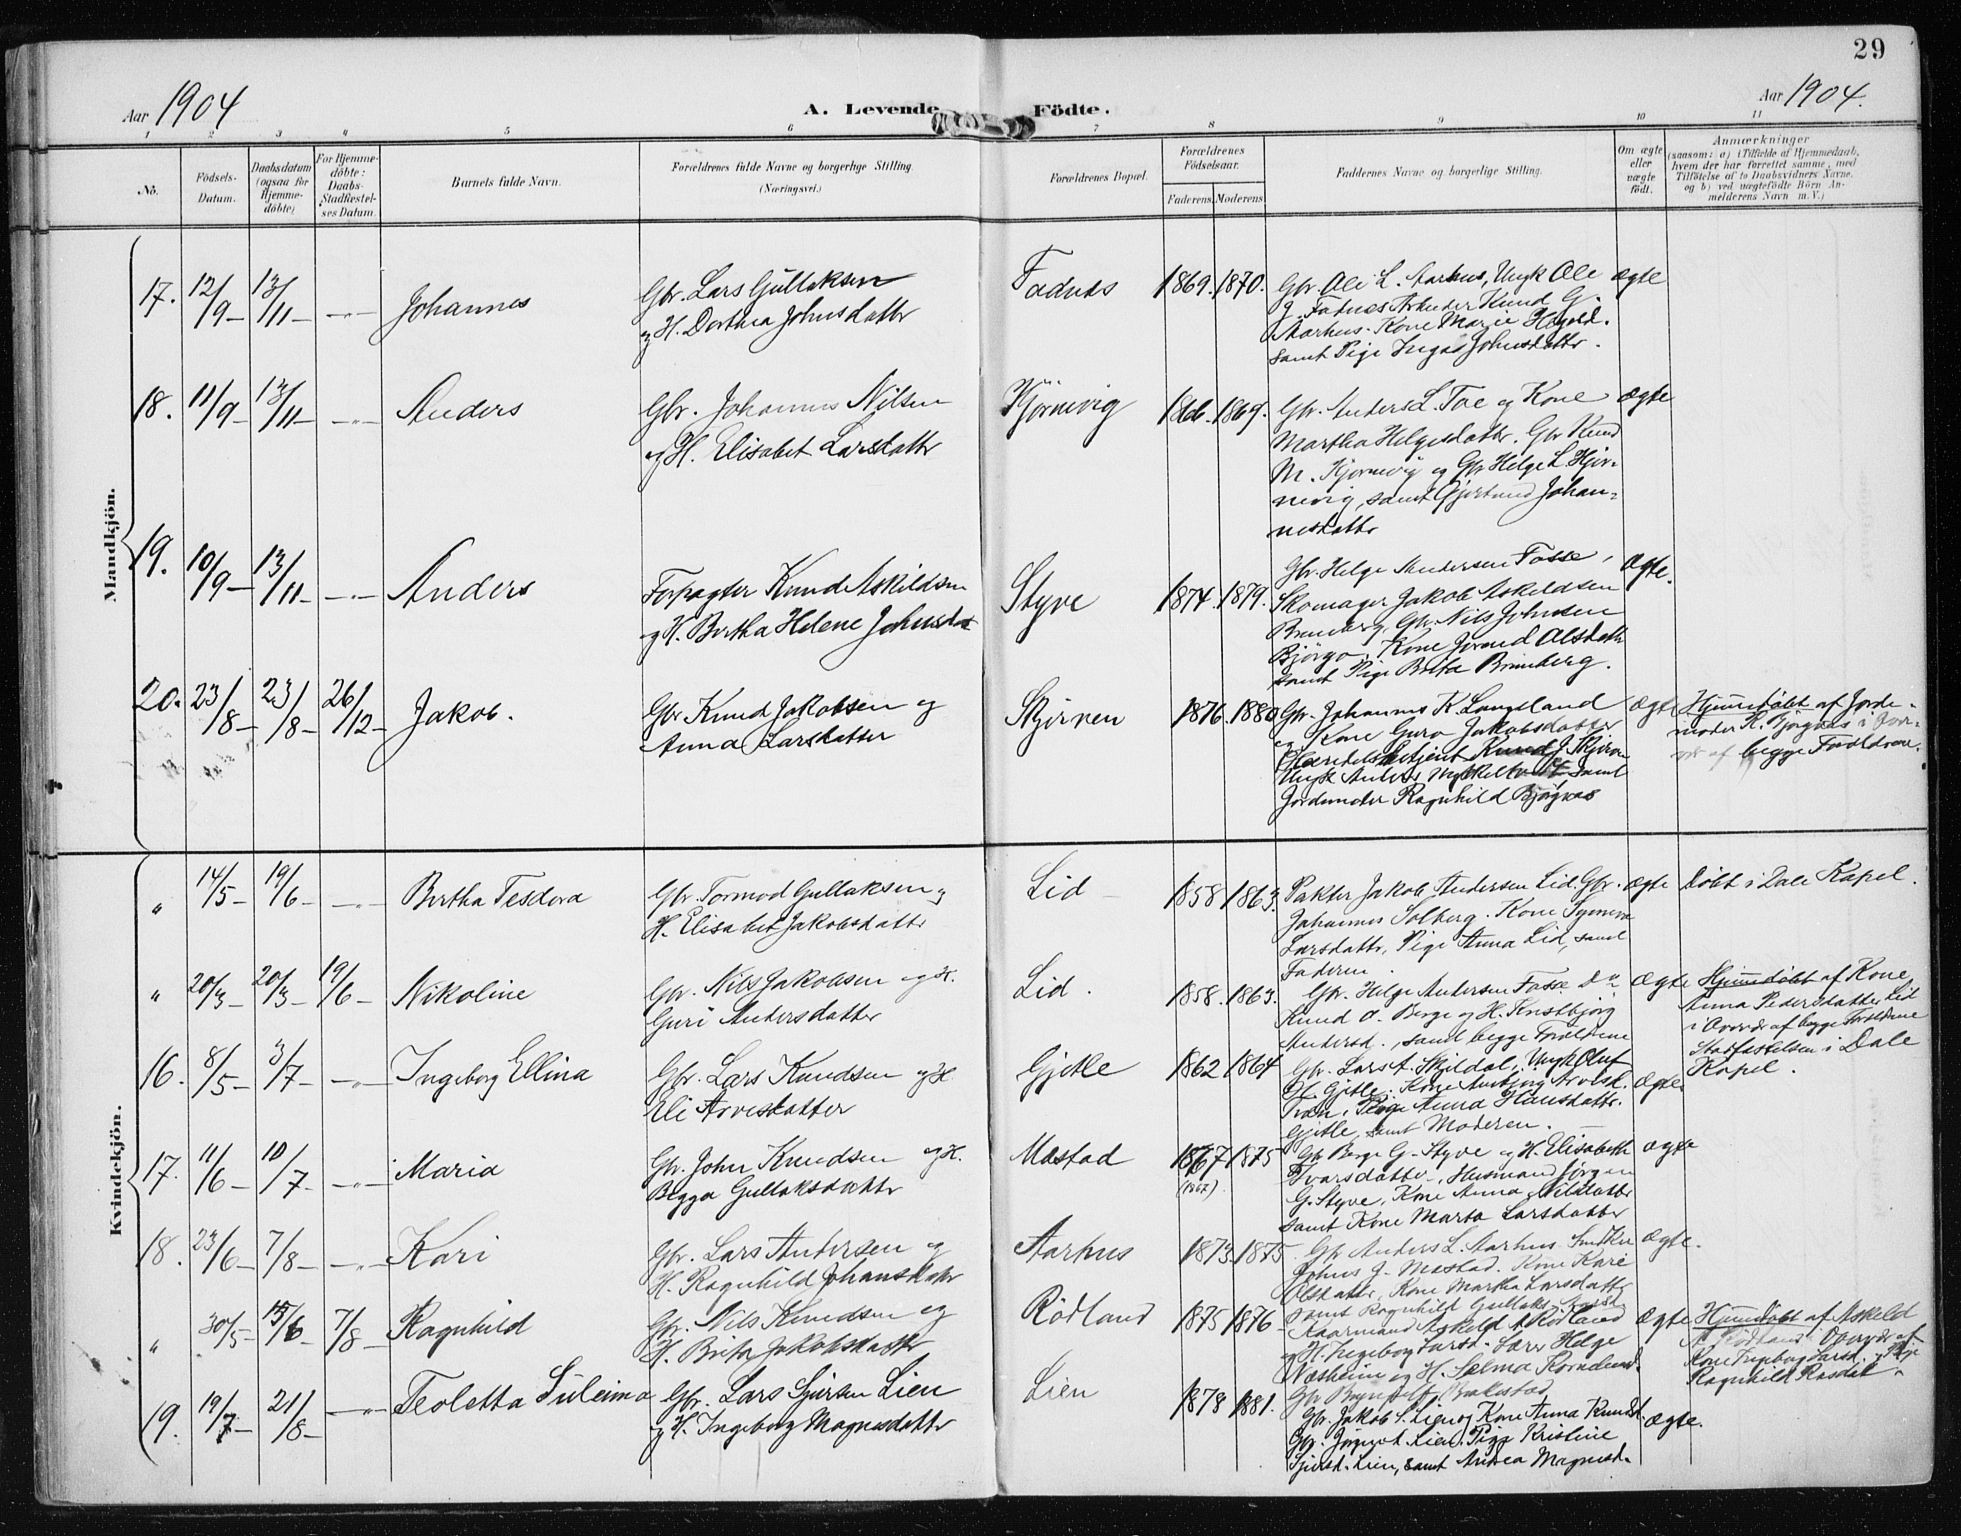 29
Aar 1904
A. Levende Födte.
Aar 1904.
1 2 3 4 5 6 7 8 9 10 11
No.
Födsels-Datum.
Daabsdatum (ogsaa for Hjemme-döbte)
For Hjemme-döbte: Daabs-Stadfæstel-ses Datum.
Barnets fulde Navn.
Forældrenes fulde Navne og borgerlige Stilling.
(Næringsvei.)
Forældrenes Bopæl.
Forældrenes Födselsaar.
Faderens. Moderens.
Faddernes Navne og borgerlige Stilling.
Om ægte eller uægte födt.
Anmærkninger
(saasom: a) i Tilfælde af Hjemmedaab,
hvem der har forrettet samme, med
Tilföielse af to Daabsvidners Navne.
og b) ved uægtefödte Börn An-
melderens Navn m. V.)
Mandkjön.
17. 12/9 13/11 Johannes
Gbr. Lars Gullaksen
og H. Dorthea Johnsdatter
Fadnes 1869. 1870.
Gbr. Ole L. Aarhus, Ungk Ole
G. Fadnes Arbeider Knud G.
Aarhus. Kone Marie
samt Pige Inga Johnsdatter.
ægte
18. 11/9 13/11 Anders
Gbr. Johannes Nilsen
og H. Elisabet Larsdatter
Kjørnevig 1866. 1869.
Gbr. Anders L. Foe og Kone
Martha Helgesdatter. Gbr Knud
M. Kjørnevig og Gbr Helge L. Kjør-
nevig, samt Gjertrud Johan-
nesdatter
ægte
19. 10/9 13/11 Anders
Forpagter Knud Askildsen
og H. Bertha Helene Johnsdat
Styve 1874. 1879.
Gbr. Helge Andersen Fosse,
Skomager Jakob Askeldsen
Brunborg, Gbr. Nils Johnsen
Bjørgo, Kone Jorend Olsdatter
samt Pige Brita Brunborg.
ægte.
20. 23/8 23/8 26/12 Jakob.
Gbr Knud Jakobsen og
Anna Larsdatter
Skjørven 1876. 1880
Gbr. Johannes K. Langeland
og Kone Guro Jakobsdatter
Handelsbetjent Knud J. Skjerve
Ungk Anders samt
Jordemoder Ragnhild Bjørgaas
ægte
Hjemmedøbt af Jorde-
moder R. Bjørgaas i Over-
vær af begge Forældrene.
Kvindekjön.
" 14/5 19/6 Bertha Tesdora
Gbr. Tormod Gullaksen og
H. Elisabet Jakobsdatter
Lid 1858 1863.
Pakter Jakob Andersen Lid. Gbr.
Johannes Solberg. Kone Synneva
Larsdatter, Pige Anna Lid, samt
Faderen.
ægte
Døbt i Dale Kapel.
" 20/3 20/3 19/6 Nikoline
Gbr. Nils Jakobsen og H.
Guri Andersdatter
Lid. 1858. 1863.
Gbr. Helge Andersen Fosse Do
Knud O. Berge og H. Kristbjørg
Andersd., samt begge Forældrene
ægte
Hjemmedøbt af Kone
Anna Pedersdatter Lid
i Overvær af begge Forældrene
Stadfæstelsen i Dale
Kapel.
16. 8/5 3/7 Ingeborg Ellina
Gbr. Lars Knudsen og H.
Eli Arvesdatter
Gjetle 1862 1864
Gbr. Lars A. Skjeldal, Ungk Oluf
Gjetle. Kone
Pige Anna Hansdatter.
Gjetle, samt Moderen.
ægte
17. 11/6 10/7 Maria
Gbr. John Knudsen og H.
Begga Gullaksdatter
Mæstad 1867 1875
(1867)
Gbr Berge G. Styve og H. Elisabeth
Ivarsdatter, Husmand Jørgen
G. Styve, Kone Anna Nilsdatter
samt Kone Marta Larsdatter
ægte
18. 23/6 7/8 Kari
Gbr. Lars Andersen og
H. Ragnhild Johansdatter
Aarhus 1873. 1875.
Gbr Anders L. Aarhus. Snedker
Johns G. Mæstad. Kone Kari
Olsdatter, Kone Martha Larsdatter
samt Ragnhild Gullaks
ægte.
" 30/5 15/6 7/8 Ragnhild
Gbr. Nils Knudsen og
H. Brita Jakobsdatter
Rødland 1875 1876
Kaarmand Askeld A Rødland
og H. Ingeborg Larsd. Lærer Helge
Næsheim og H. Selma
Gbr Brynjulf
ægte
Hjemmedøbt af Askeld
A. Rødland i Overvær af
Kone Ingeborg Larsd. og Pige
Ragnhild
19. 19/7 21/8 Teoletta Suleima
Gbr. Lars Sjursen Lien
og H. Ingeborg Magnesdatter
Lien 1878 1881.
Gbr. Jakob S. Lien og Kone Anna Knudsd.
Gbr. Lien, Pige Kristine
Sjursd. Lien, samt Andrea Magnesd.
ægte.